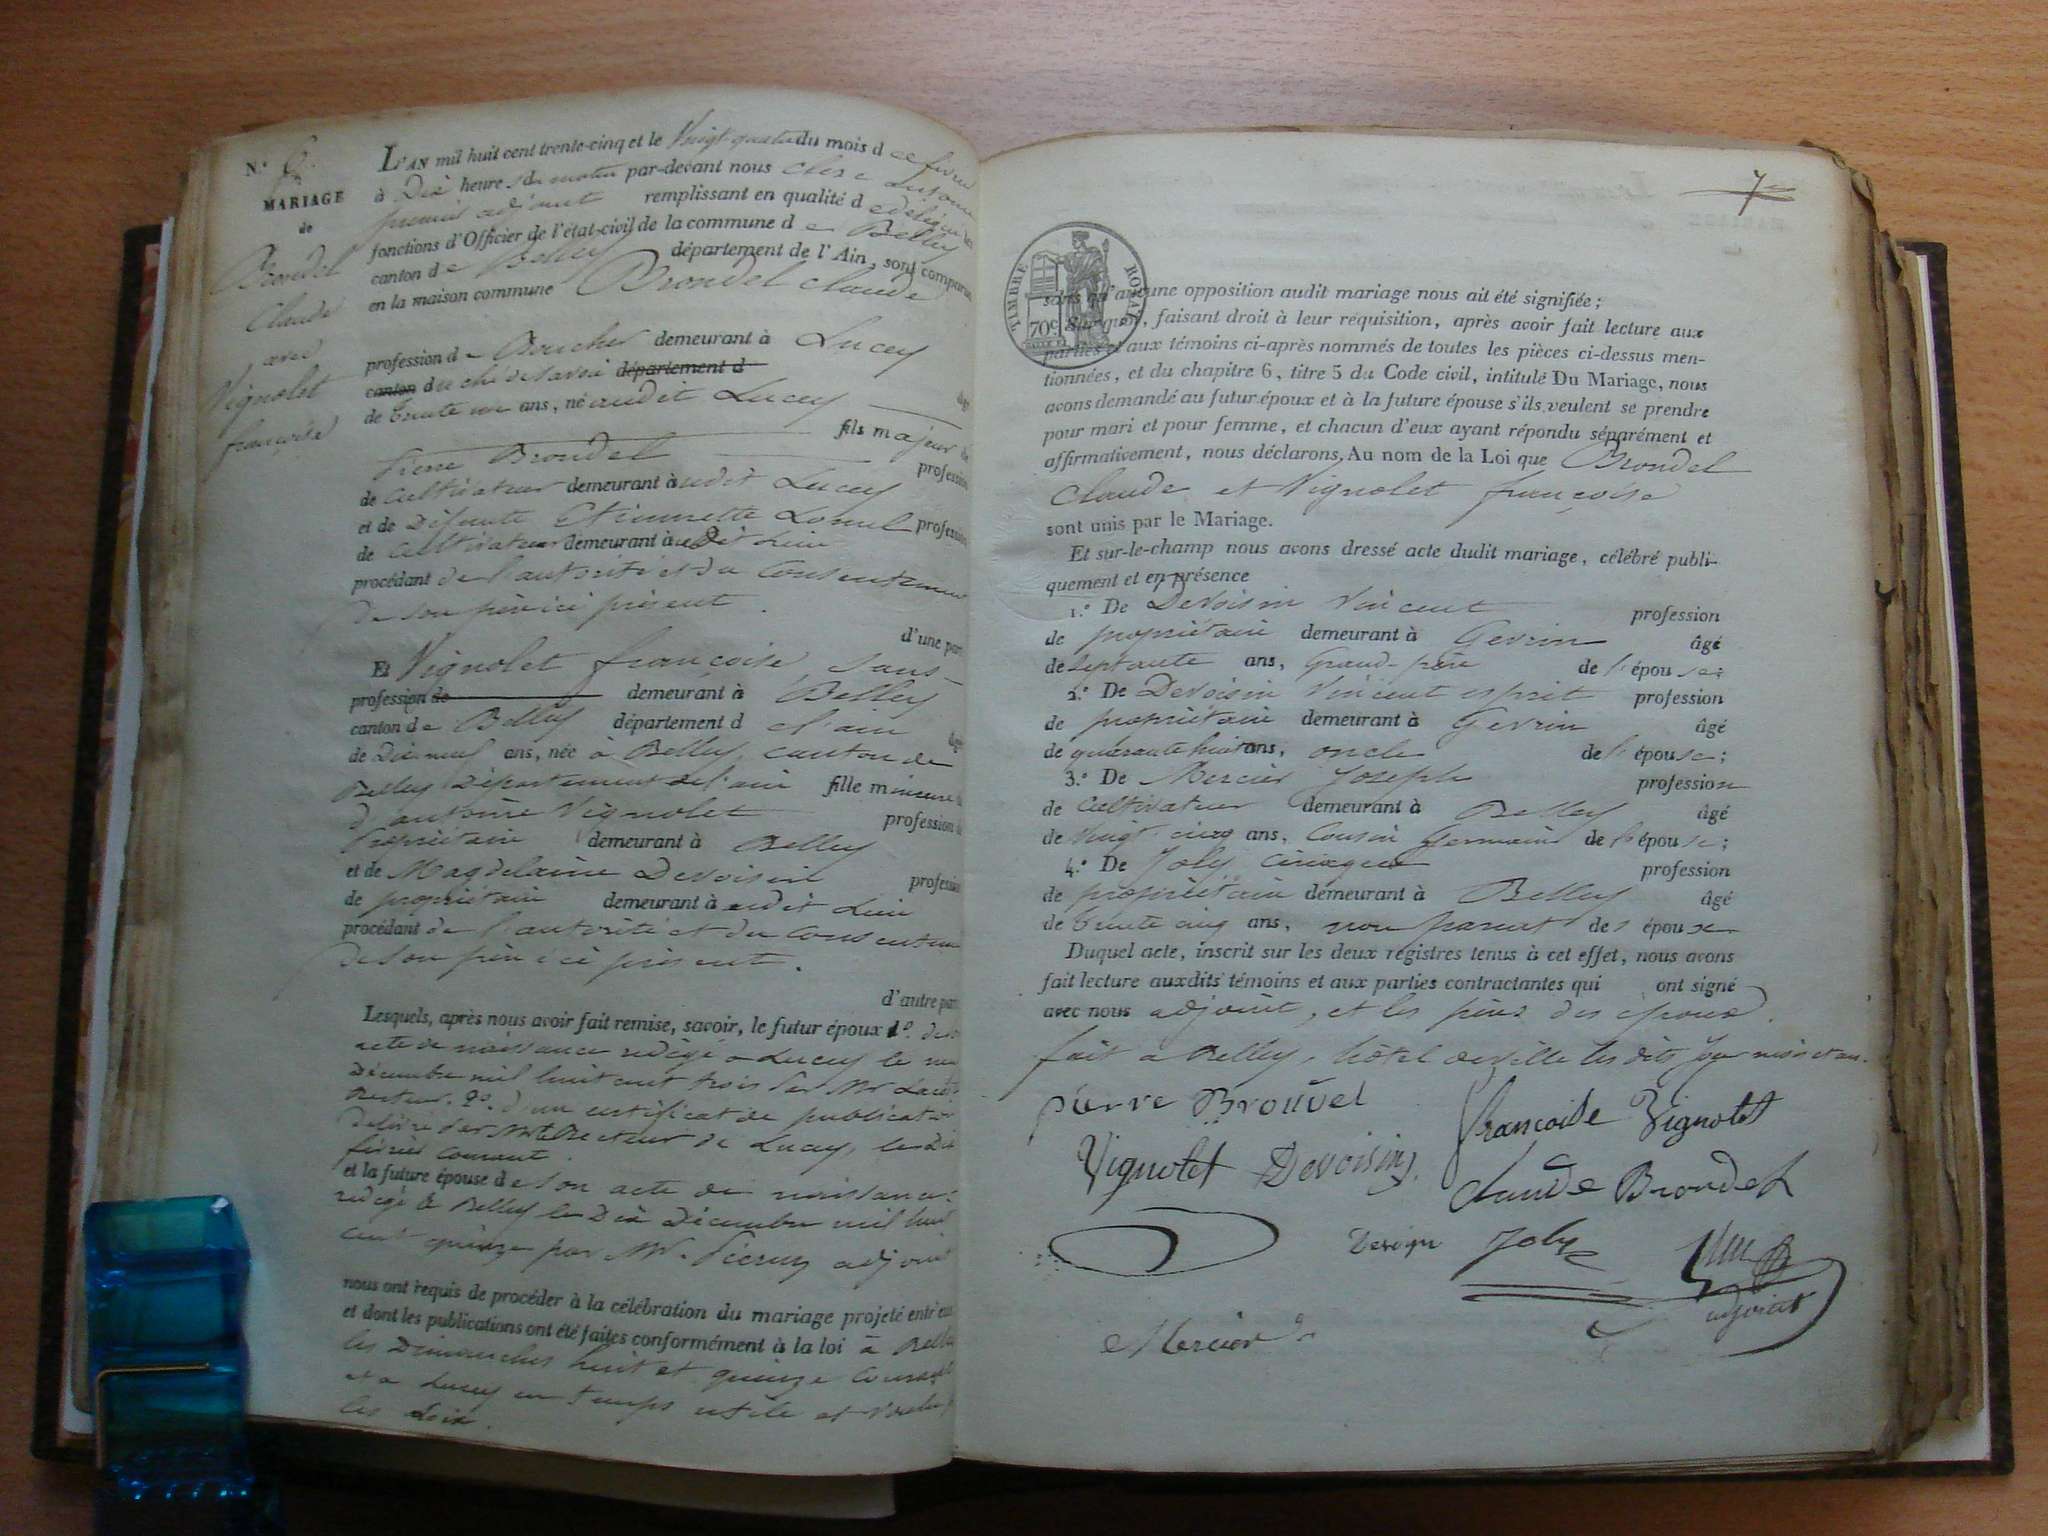 N.° 
MARIAGE
de
Brondel
Claude
avec
Vignolet
françoise
L'AN mil huit cent trente-cinq et le Vingt-quatre du mois d e févr
à Dix heures du matin par-devant nous
premier adjoint remplissant en qualité d
fonctions d'Officier de l'état-civil de la commune d e Belley
canton de Belley département de l'Ain, sont comparus
en la maison commune Brondel Claude
profession de Boucher demeurant à Lucey
canton duché de Savoie département d
âgé
de trente un ans, né audit Lucey
fils majeur de
Pierre Brondel profession
de Cultivateur demeurant audit Lucey
et de Défunte Etiennette profession
de Cultivateur demeurant audit Lieu
procédant de l'autorité et du Consentement
de son père ici présent.
d'une part
Et Vignolet françoise, sans
profession de demeurant à Belley
canton de Belley département d e l'ain
âgée
de Dix neuf ans, née à Belley, canton de
Belley Département de l'ain fille mineure
d'antoine Vignolet profession de
Propriétaire demeurant à Belley
et de Magdelaine Devoisin profession
de propriétaire demeurant audit Lieu
procédant de l'autorité et du Consentem
de son père ici présent.
d'autre part
Lesquels, après nous avoir fait remise, savoir, le futur époux 1.° de
acte de naissance rédigé à Lucey le
Décembre mil huit cent trois Par Mr
Recteur. 2.° d'un certificat de publication
délivré Par Mr Recteur de Lucey, le Dix
février Courant.
et la future épouse de son acte de naissance
rédigé à Belley le Dix Décembre mil huit
cent quinze par Mr. adjoint
nous ont requis de procéder à la célébration du mariage projeté entr'eux
et dont les publications ont été faites conformément à la loi à Belley
les Dimanches huit et quinze Courant
et à Lucey en temps utile et voulu
les Loix.
7
TIMBRE ROYAL
70c
sans qu'aucune opposition audit mariage nous ait été signifiée;
Sur quoi, faisant droit à leur réquisition, après avoir fait lecture aux
parties et aux témoins ci-après nommés de toutes les pièces ci-dessus men-
tionnées, et du chapitre 6, titre 5 du Code civil, intitulé Du Mariage, nous
avons demandé au futur époux et à la future épouse s'ils veulent se prendre
pour mari et pour femme, et chacun d'eux ayant répondu séparément et
affirmativement, nous déclarons, Au nom de la Loi que Brondel
Claude et Vignolet françoise
sont unis par le Mariage.
Et sur-le-champ nous avons dressé acte dudit mariage, célébré publi-
quement et en présence
1.° De Devoisin Vincent profession
de propriétaire demeurant à Gevrin âgé
de septante ans, Grand-père de l'épouse;
2.° De Devoisin Vincent esprit profession
de propriétaire demeurant à Gevrin âgé
de quarante huit ans, oncle de l'épouse;
3.° De Mercier Joseph profession
de Cultivateur demeurant à Belley âgé
de Vingt-cinq ans, Cousin Germain de l'épouse;
4.° De Joly profession
de propriétaire demeurant à Belley âgé
de trente cinq ans, non parent des époux
Duquel acte, inscrit sur les deux registres tenus à cet effet, nous avons
fait lecture auxdits témoins et aux parties contractantes qui ont signé
avec nous adjoint, et les pères des époux.
fait à Belley, hôtel de ville les dits jour mois et an.
pierre Brouvel
françoise Vignolet
Vignolet Devoisin
Claude Brondel
Joly
adjoint
Mercier